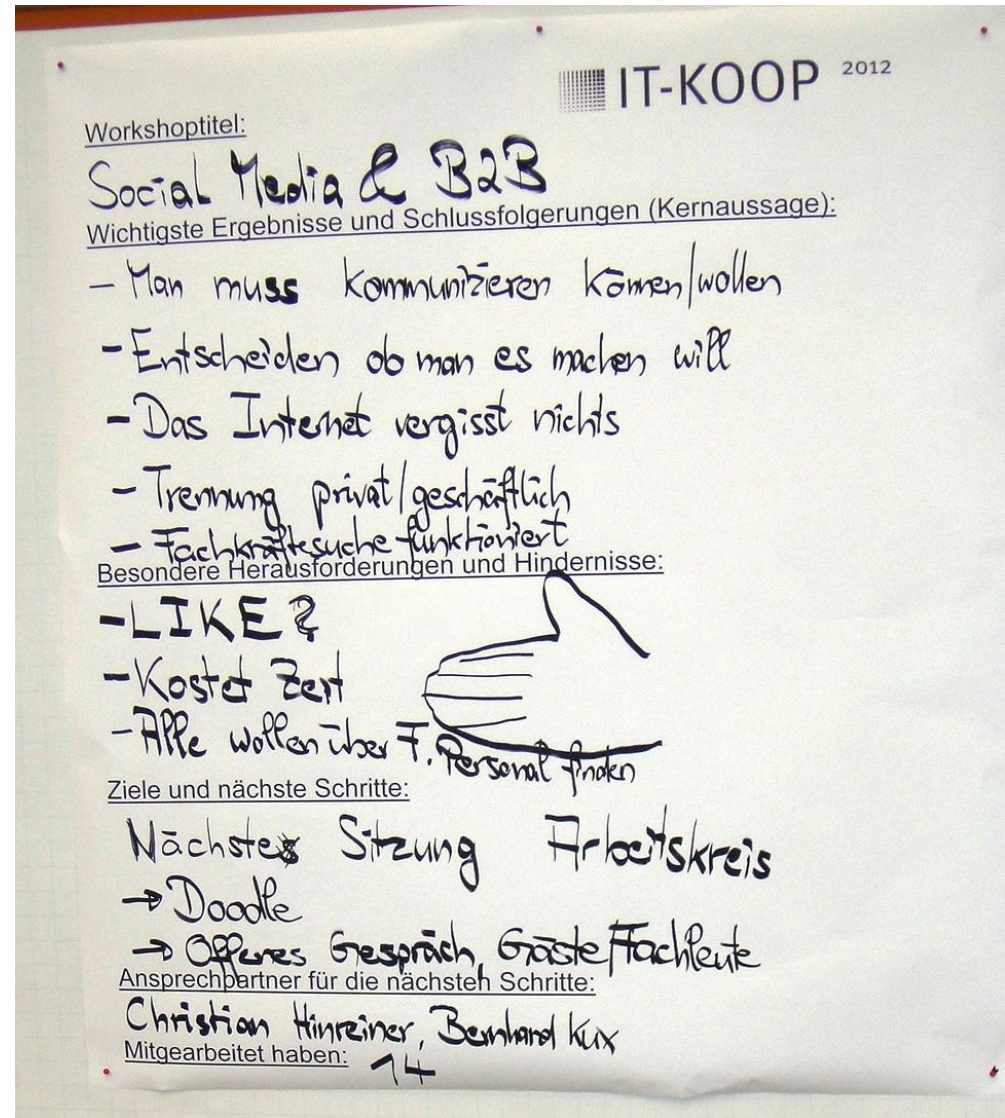 IT-KOOP 2012
Workshoptitel:
Social Media & B2B
Wichtigste Ergebnisse und Schlussfolgerungen (Kernaussage):
- Man muss kommunizieren können/wollen
- Entscheiden ob man es machen will
- Das Internet vergisst nichts
- Trennung privat/geschäftlich
- Fachkräftesuche funktioniert
Besondere Herausforderungen und Hindernisse:
- LIKE?
- Kostet Zeit
- Alle wollen über F. Personal finden
Ziele und nächste Schritte:
Nächste Sitzung Arbeitskreis
→ Doodle
→ Offenes Gespräch, Gäste/Fachleute
Ansprechpartner für die nächsten Schritte:
Christian Hinreiner, Bernhard Kux
Mitgearbeitet haben: 14